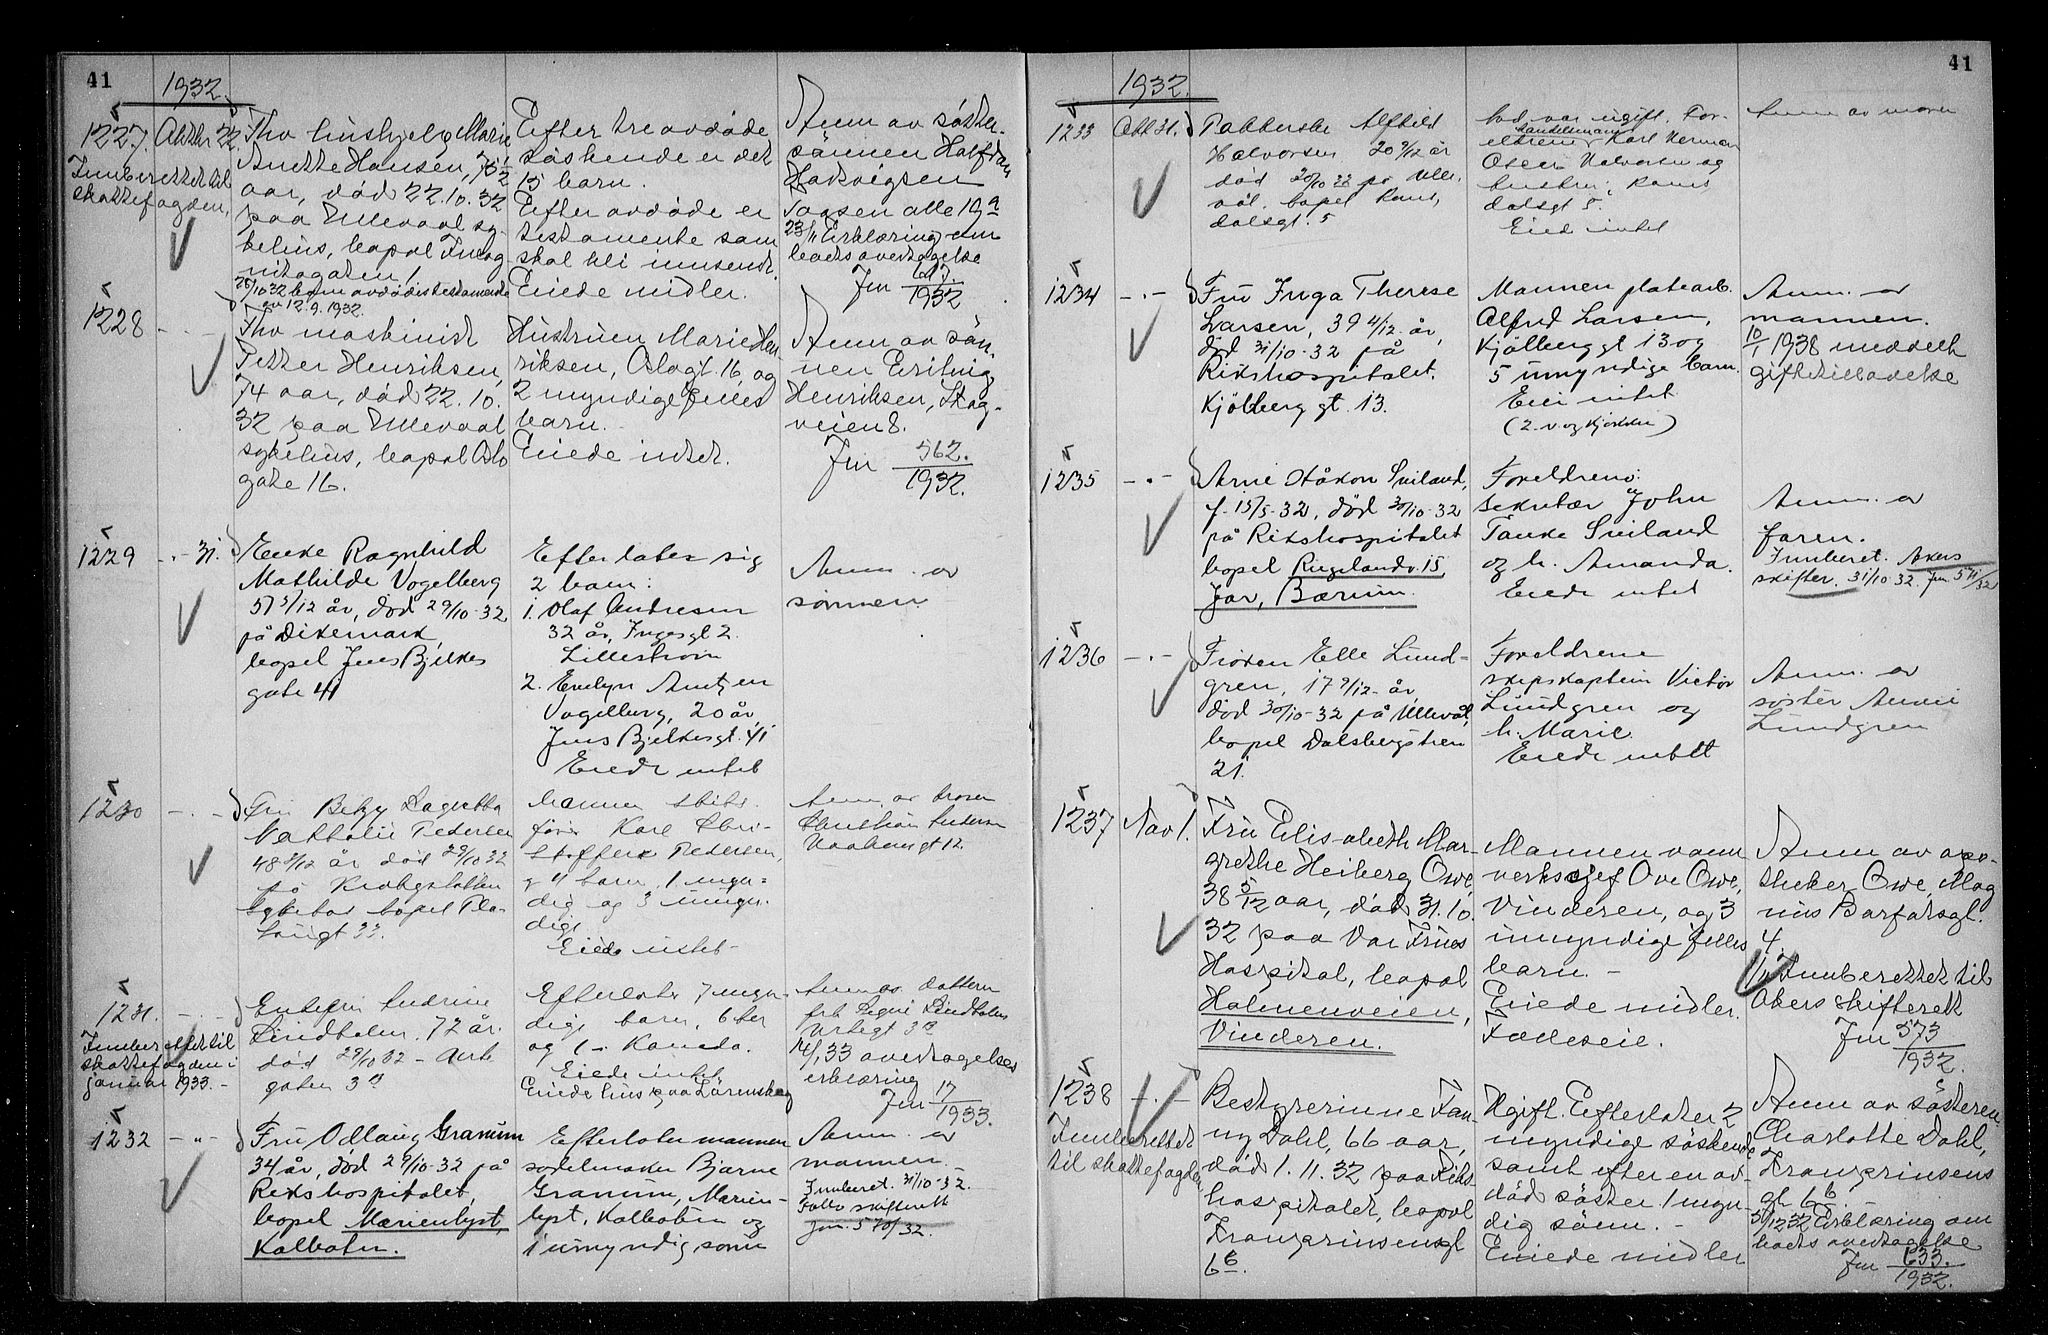 41
1932.
1227. Oktbr 22. Fhv hushjelp Marie
Anette Hansen, 75 1/2
aar, død 22.10.32
paa Ullevaal sy-
kehus, bopel Incog-
nitogaten 1
26/10 32 kom avdødes testamente
av 12.9.1932.
Innberettet til
skattefogden,
Efter tre avdøde
søskende er det
15 barn.
Efter avdøde er
testamente som
skal bli innsendt.
Eiede midler.
Anm av søster-
sønnen Halfdan
Hals alle 19 a
23/11 Erklæring om
boets overtagelse
Jnr 617/1932
1228 - " - Fhv maskinist
Petter Henriksen,
74 aar, død 22.10.
32 paa Ullevaal
sykehus, bopel Oslo
gate 16.
Hustruen Marie Hen
riksen, Oslogt. 16, og
2 myndige felles
barn.
Eiede intet.
Anm av søn-
nen Erling
Henriksen, Skog-
veien 8.
Jnr 562./1932.
1229 - " - 31. Enke Ragnhild
Mathilde Vogelberg
57 5/12 år, død 29/10-32
på Dikemark
bopel Jens Bjelkes
gate 41
Efterlater sig
2 barn:
1. Olaf Andresen
32 år, Ingesgt 2.
Lillestrøm
2. Evelyn Arntzen
Vogelberg, 20 år,
Jens Bjelkesgt. 41
Eiede intet
Anm. av
sønnen.
1230 - " - Fru Betzy Lagertha
Nathalie Pedersen
48 8/12 år død 29/10 32
på Krohgstøtten
sykehus bopel Plo-
Mannen skibs-
fører Karl Chri-
stoffer Pedersen,
og 4 barn, 1 myn-
dig og 3 umyn-
dige
Eiede intet-
Anm. av broren
Christian
1231. - " - Enkefru Andrine
Lindholm, 72 år.
død 29/10 32 -
gaten 3 B
Innberettet til
skattefogden i
januar 1933. -
Efterlater 7 myn-
dige barn, 6 her
og 1 i Kanada.
Eiede intet
Eiede hus paa Lørenskog
Anm av datteren
frk Signe Lindholm
14/1 33 overtagelses
erklæring
Jnr 17/1933.
1232 - " - Fru Odlaug Granum
34 år, død 29/10-32 på
Rikshospitalet,
bopel Marienlyst,
Kolbotn.
Efterlater mannen
sadelmaker Bjarne
Granum, Marien-
lyst, Kolbotn og
1 umyndig sønn
Anm. av
mannen. -
Innberet. 31/10-32.
Follo skifterett
jnr. 570/32.
41
1932.
1233 Okt 31. Pakkerske Alfhild
Halvorsen 20 9/12 år
død 30/10 32 på Ulle-
vål. bopel Rams
dalsgt. 5
Avd. var ugift. For-
eldrene handelsmann Karl Herman
Oskar Halvorsen og
hustru, Rams
dalsgt 5.
Eied intet
Anm av moren
1234 - " - Fru Inga Therese
Larsen, 39 4/12 år,
død 31/10-32 på
Rikshospitalet.
Kjølberggt. 13.
Mannen platearb.
Alfred Larsen,
Kjølberggt 13 og
5 umyndige barn.
Eier intet
(2 v og kjøkken)
Anm. av
mannen.
10/1 1938 meddelt
giftetilladelse
1235 - " - Arne Håkon Sviland,
f. 15/5-32, død 30/10-32
på Rikshospitalet
bopel Ringelandv. 15,
Jar, Bærum.
Foreldrene:
sekretær John
Tanke Sviland
og h. Amanda.
Eiede intet
Anm. av
faren.
Innberet. Akers
skifter. 31/10 32. Jnr 571/32
1236 - " - Frøken Elle Lund-
gren, 17 9/12 år,
død 30/10-32 på Ullevål,
bopel Dalsbergstien
21.
Foreldrene
skipskaptein Victor
Lundgren og
h. Marie
Eiede intet
Anm. av
søster Annie
Lundgren
1237 Nov 1. Fru Elisabeth Mar-
grethe Heiberg Owe,
38 5/12 aar, død 31.10.
32 paa Vor Frues
Hospital, bopel
Holmenveien,
Vinderen.
Mannen vann-
verksjef Ove Owe,
Vinderen, og 3
umyndige felles
barn. -
Eiede midler.
Fælleseie.
Anm av apo-
theker Owe, Mag
nus Barfotsgt.
4.
1/11 Innberettet til
Akers skifterett
Jnr 573/1932.
1238 - " - Bestyrerinne Fan-
ny Dahl, 66 aar,
død 1.11.32 paa Riks-
hospitalet, bopel
Kronprinsensgt
6 b.
Innberettet
til skattefogden
Ugift. Efterlater 2
myndige søskende
samt efter en av-
død søster 1 myn-
dig sønn. -
Eiede midler
Anm av søsteren
Charlotte Dahl,
Kronprinsens
gt 6 b
5/12 32 Erklæring om
boets overtagelse
Jnr 633./1932.